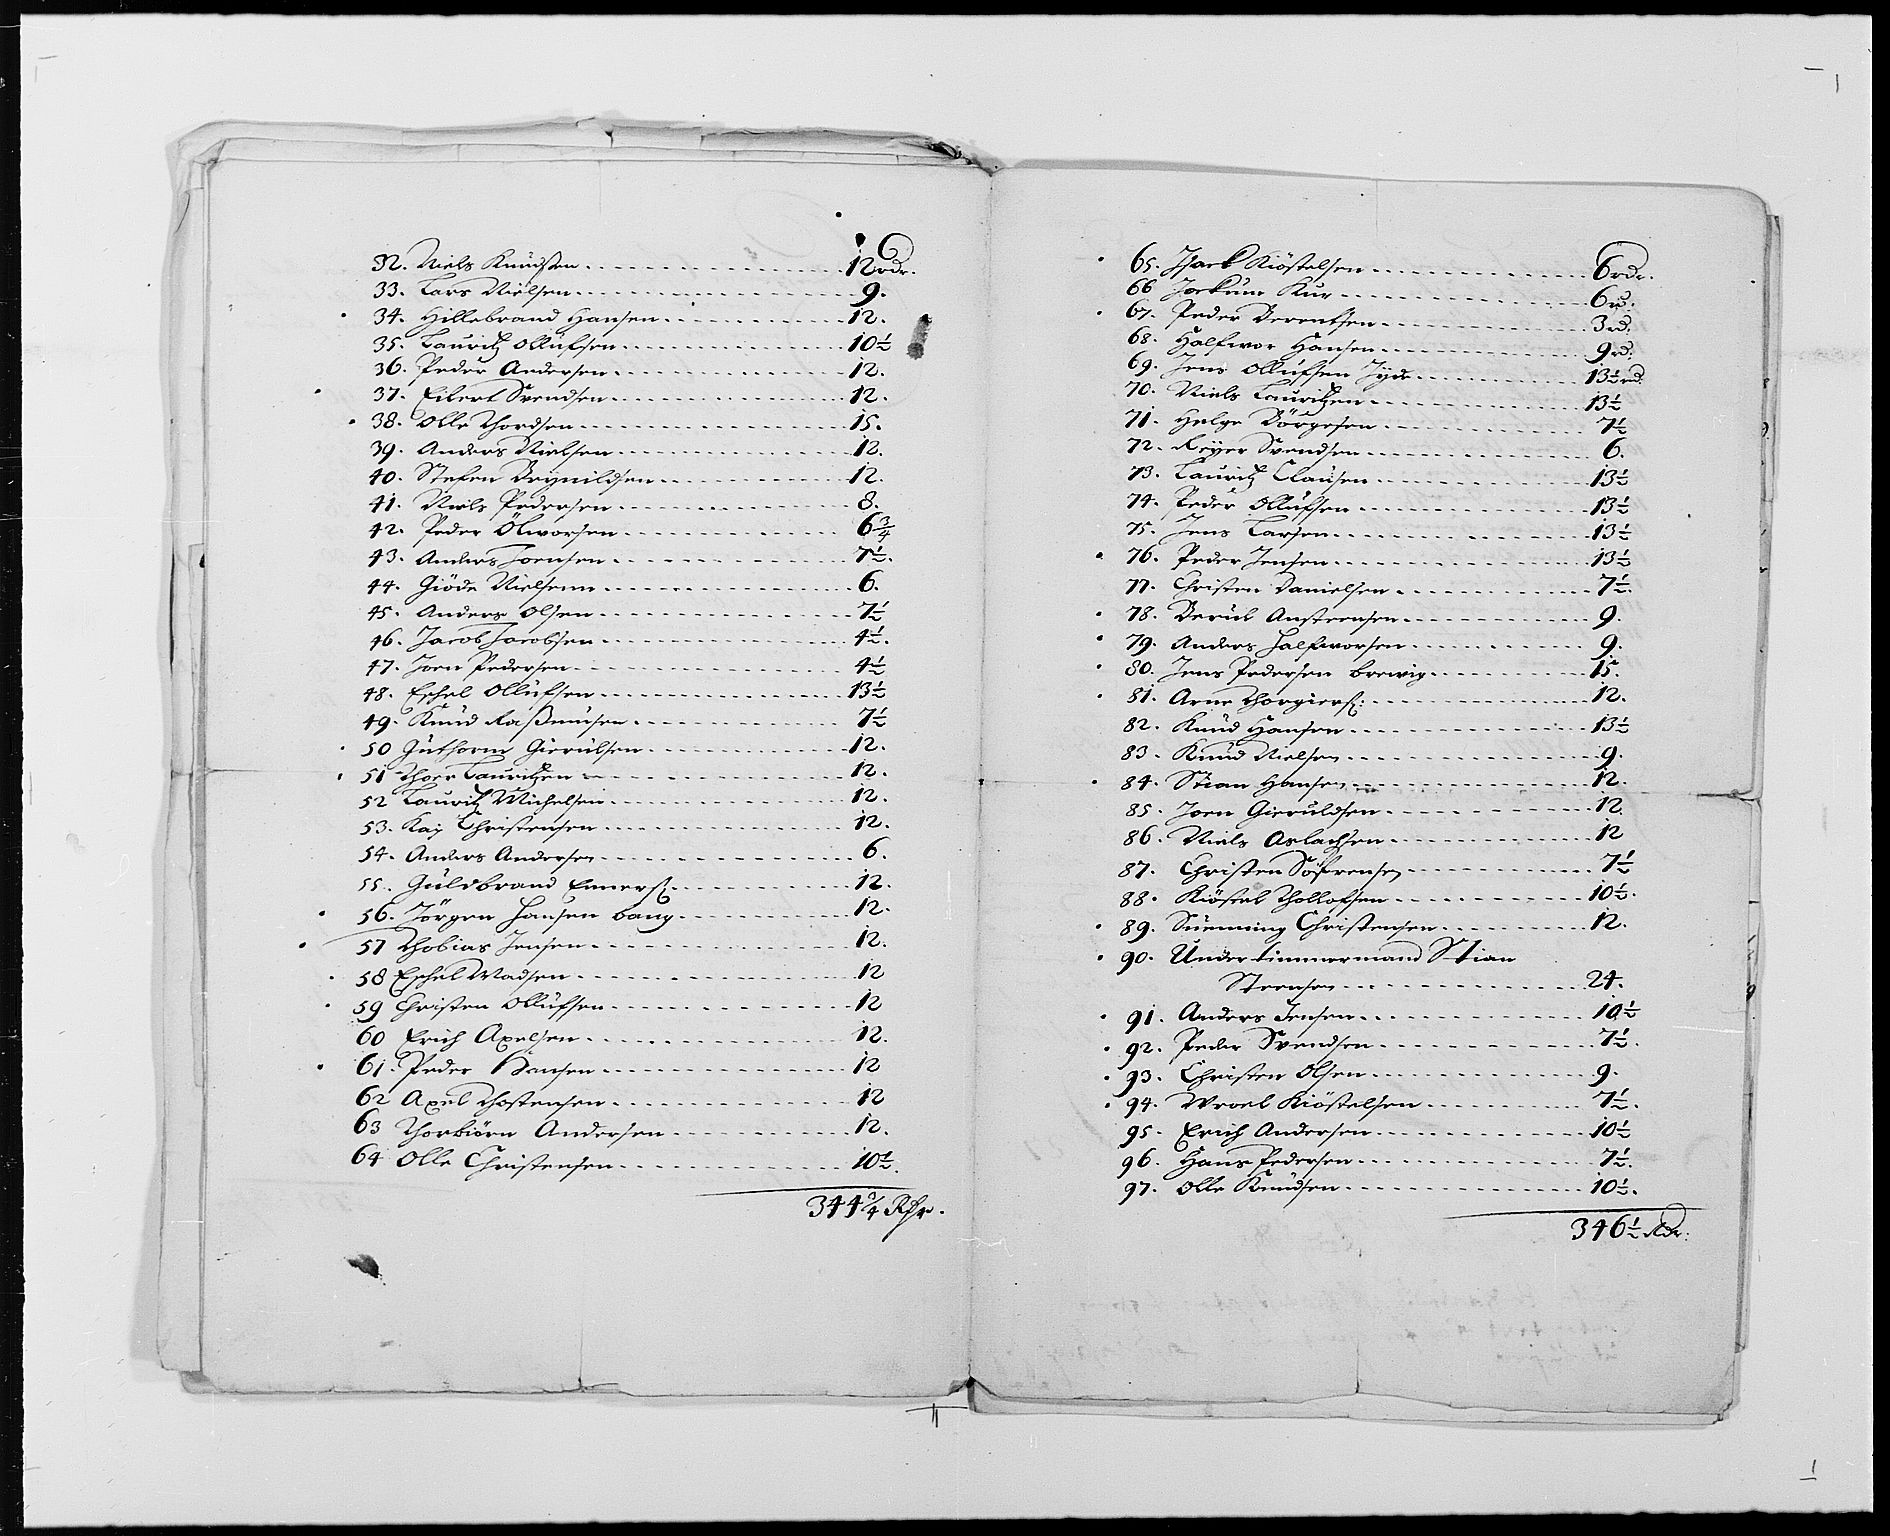 32. Niels Knudsen 12 rdr.
33. Lars Nielsen 9.
34. Hillebrand Hansen 12.
35. Lauritz Ollufsen 10½
36. Peder Andersen 12.
37. Eilert Svendsen 12.
38. Olle Thordsen 15.
39. Anders Nielsen 12.
40. Stefen Brynildsen 12.
41. Niels Pedersen 8.
42. Peder Olworsen 6¾
43. Anders Joensen 7½.
44. Giöde Nielsenn 6.
45. Anders Olsen 7½
46. Jacob Jacobsen 4½.
47. Joen Pedersen 4½
48. Eschel Ollufsen 13½
49. Knud Raßmusen 7½
50 Guthorm Gierulsen 12.
51 Thoer Lauritzen 12.
52 Lauritz Michelsen 12.
53. Kaj Christensen 12.
54. Anders Andersen 6.
55. Guldbrand Enners: 12.
56. Jörgen Hansen bang 12.
57 Thobias Jensen 12.
58 Eschel Madsen 12
59 Christen Ollufsen 12
60 Erich Axelsen 12.
61. Peder Hansen 12
62 Axel Thostensen 12
63 Thorbiörn Andersen 12.
64 Olle Christensen 10½.
344¾ Rdr.
65. Isack Kiöstelsen 6 rdr.
66 Jockum Kur 6 rd.
67. Peder Berentsen 3 rd.
68. Halfwor Hansen 9 rd:
69. Jens Ollufsen Jyde 13½ rd.
70. Niels Lauritzen 13½
71. Helge Börgesen 7½
72. Reyer Svendsen 6.
73. Lauritz Clausen 13½
74. Peder Ollufsen 13½
75. Jens Larsen 13½
76. Peder Jensen 13½
77. Christen Danielsen 7½.
78. Berul Anstensen 9.
79. Anders Halfworsen 9.
80. Jens Pedersen brewig 15.
81. Arne Thorgiers: 12.
82. Knud Hansen 13½
83. Knud Nielsen 9.
84. Stian Hansen 12.
85. Joen Gieruldsen 12
86. Niels Aslachsen 12
87. Christen Söfrensen 7½
88. Kiöstel Thollofsen 10½.
89. Suenning Christensen 12.
90. Under timmermand Stian
Steensen 24.
91. Anders Jensen 10½
92. Peder Svendsen 7½.
93. Christen Olsen 9.
94. Wroel Kiöstelsen 7½.
95. Erich Andersen 10½
96. Hans Pedersen 7½.
97. Olle Knudsen 10½.
346½ Rdr.